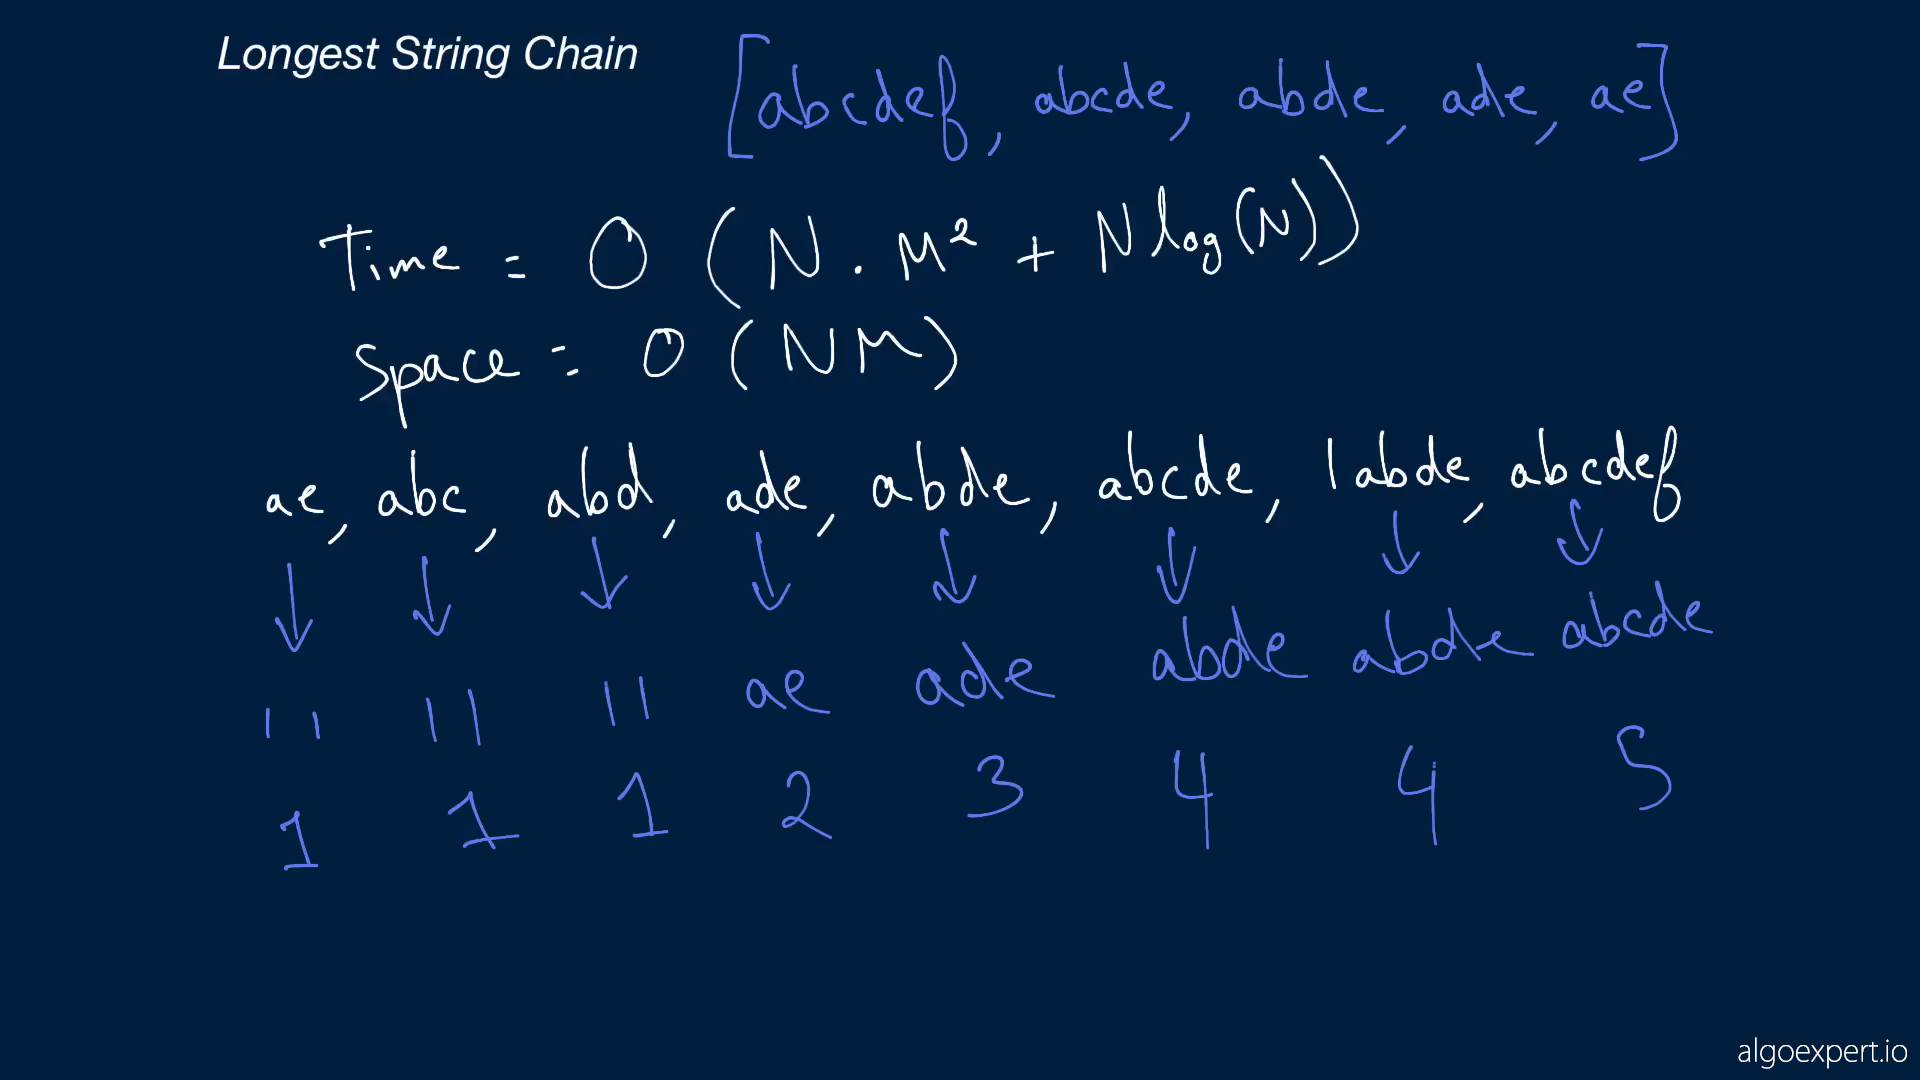 Longest String Chain
[abcdef, abcde, abde, ade, ae]
Time = O (N . M² + N log(N))
Space = O (NM)
ae, abc, abd, ade, abde, abcde, 1abde, abcdef
" " " ae ade abde abde abcde
1 1 1 2 3 4 4 5
algoexpert.io